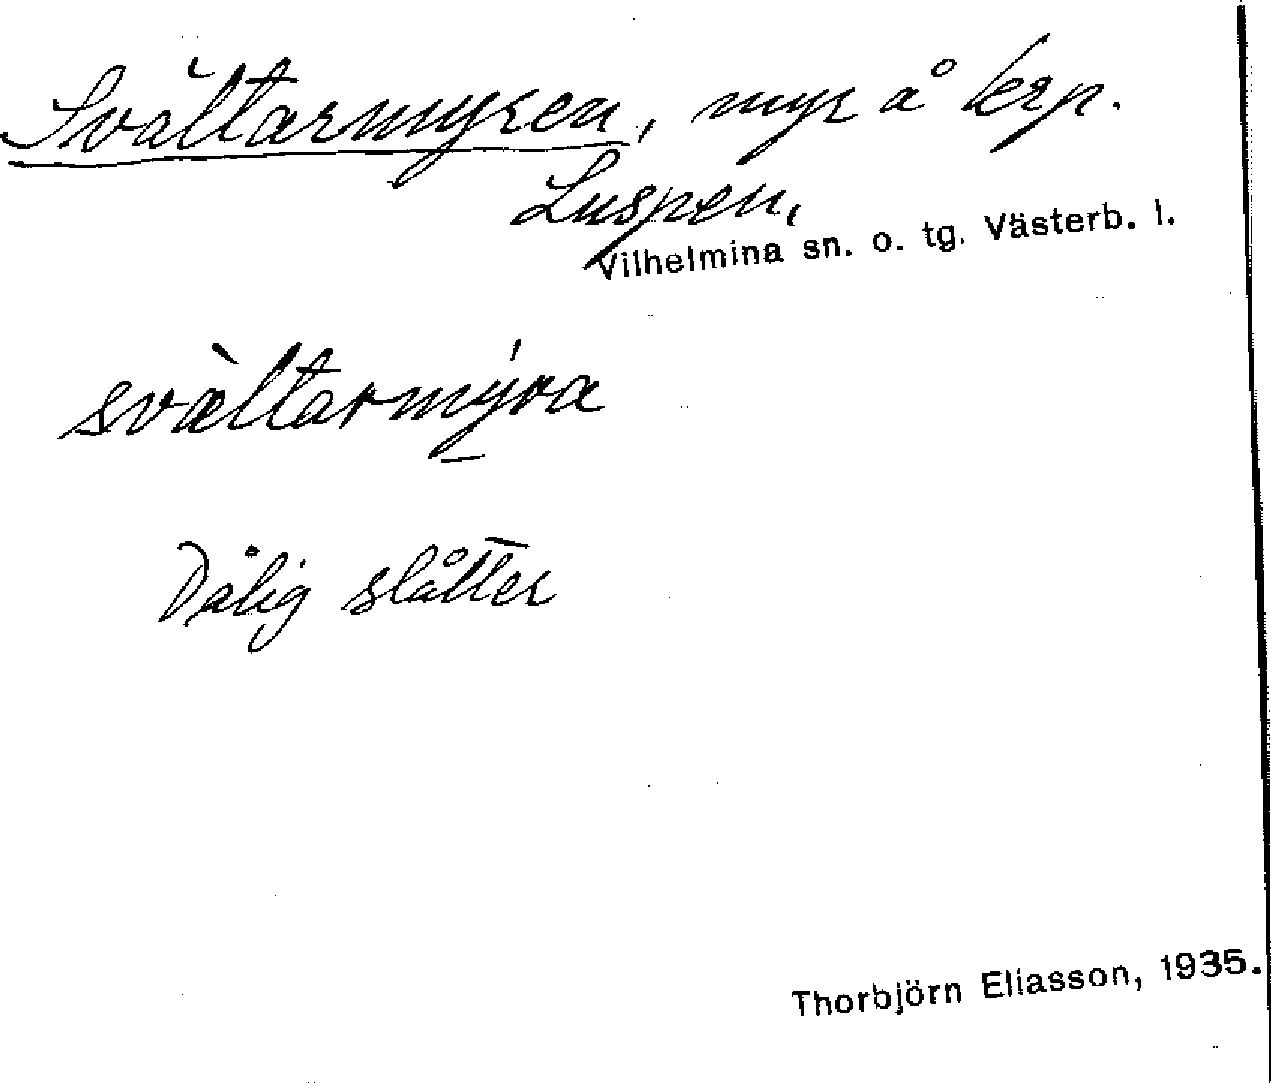 Svältarmyren, myr å krp.
Luspen,
Vilhelmina sn. o. tg. Västerb. l.
svàltarmýra
Dålig slåtter
Thorbjörn Eliasson, 1935.